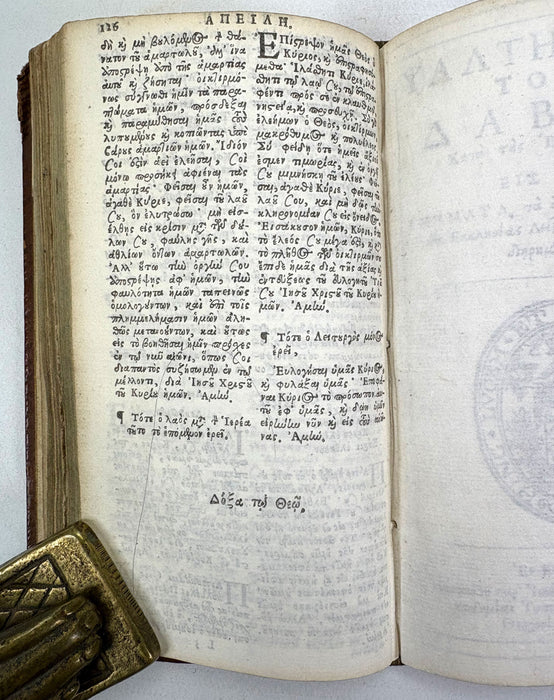 126
ΑΠΕΙΛΗ.
δὴ κỳ μὴ βυλόμυος θά-
νατον τ̃ ἁμαρτωλῦ, ἀλλ' ἵνα
ὑποστρέψῃ ὑπὸ τῆς ἁμαρτίας
αὐτῦ κỳ ζήσηται· οἰκτιρμό-
νως συγγνωθι ἡμῖν τὰ παρα-
πτώματα ἡμῶν, πρόσδεξαι
κỳ παραμύθησαι ἡμᾶς
λυπυμύυς κỳ κοπιῶντας ὑπὸ
βάρυς ἁμαρτιῶν ἡμῶν. Ἴδιόν
Σοι ὅτιν ἀεὶ ἐλεῆσαι, Σοὶ
μόνῳ προσήκει ἀφιέναι τὰς
ἁμαρτίας· φεῖσαι ἦν ἡμῶν,
ἀγαθὲ Κύριε, φεῖσαι τῦ λαῦ
Συ, ὃν ἐλυτρώσω· μὴ εἰσ-
έλθῃς εἰς κρίσιν μζ τ̃ δύ-
λων Συ, φαύλης γῆς, καὶ
ἀθλίων ὄντων ἁμαρτωλῶν.
Ἀλλ' ὕτω τὴν ὀργὴν Συ
ὑπόστρεψε ἀφ' ἡμῶν, τὴν
φαυλότητα ἡμῶν ταπεινῶς
ὁμολογύντων, καὶ ὑπὶ τοῖς
πλημμελήμασιν ἡμῶν ἀλη-
θῶς μετανούντων, καὶ ὕτως
εἰς τὸ βοηθῆσαι ἡμῖν
ἐν τῷ νυῦ αἰῶνι, ὅπως Σοι
διαπαντὸς συζήσωμεν ἐν τῷ
μέλλοντι, διὰ Ἰησῦ Χριστῦ
τῦ Κυρίυ ἡμῶν. Ἀμήν.
¶ Τότε ὁ λαὸς μζ τ̃ Ἱερέα
τῦτο τὸ ἑπόμυον ἐρεῖ.
ΕΠίστρεψον ἡμᾶς Θεὲ ὁ
Κύριος, κỳ ὑπιστραφησό-
μεθα· Ἱλάσθητι Κύριε, ἱλά-
σθητι τῷ λαῷ Συ, τῷ ὑπιστρα-
φέντι πρὸς σὲ ἐν κλαυθμῷ,
νηστείᾳ, κỳ προσευχῇ. Σὺ
ἐλεήμων ὁ Θεὸς, οἰκτίρμων,
μακρόθυμος κỳ πολυέλεος·
Σὺ φείδῃ ὅτε ἡμεῖς ἄξιοί
ἐσμεν τιμωρίας, κỳ ἐν ὀργῇ
Συ μιμνήσκῃ τῦ ἐλέυς· Φεῖ-
σαι, ἀγαθὲ Κύριε, φεῖσαι τῦ
λαῦ Συ, καὶ μὴ δῷς τὴν
κληρονομίαν Συ εἰς ὄνειδος.
Εἰσάκυσον ἡμῶν, Κύριε, ὅτι
τὸ ἔλεός Συ μέγα ὅτι, κỳ κζ
τὸ πλῆθος τ̃ οἰκτιρμῶν σε
ἔπιδε ἡμᾶς διὰ τῆς ἀξίας κỳ
ἐντεύξεως τῦ εὐλογητῦ Ἱῦ
Συ Ἰησῦ Χριστῦ τῦ Κυρίυ ἡ-
μῶν. Ἀμήν.
¶ Τότε ὁ Λειτυργὸς μόνος
ἐρεῖ,
Εὐλογῆσαι ὑμᾶς Κύριος
κỳ φυλάξαι ὑμᾶς· Ἐπιφά-
ναι Κύριος τὸ πρόσωπον αὐ-
τῦ ἐφ' ὑμᾶς, κỳ δῴη ὑμῖν
εἰρήνην νῦν κỳ εἰς τὺς αἰῶ-
νας. Ἀμήν.
Δόξα τῷ Θεῷ.